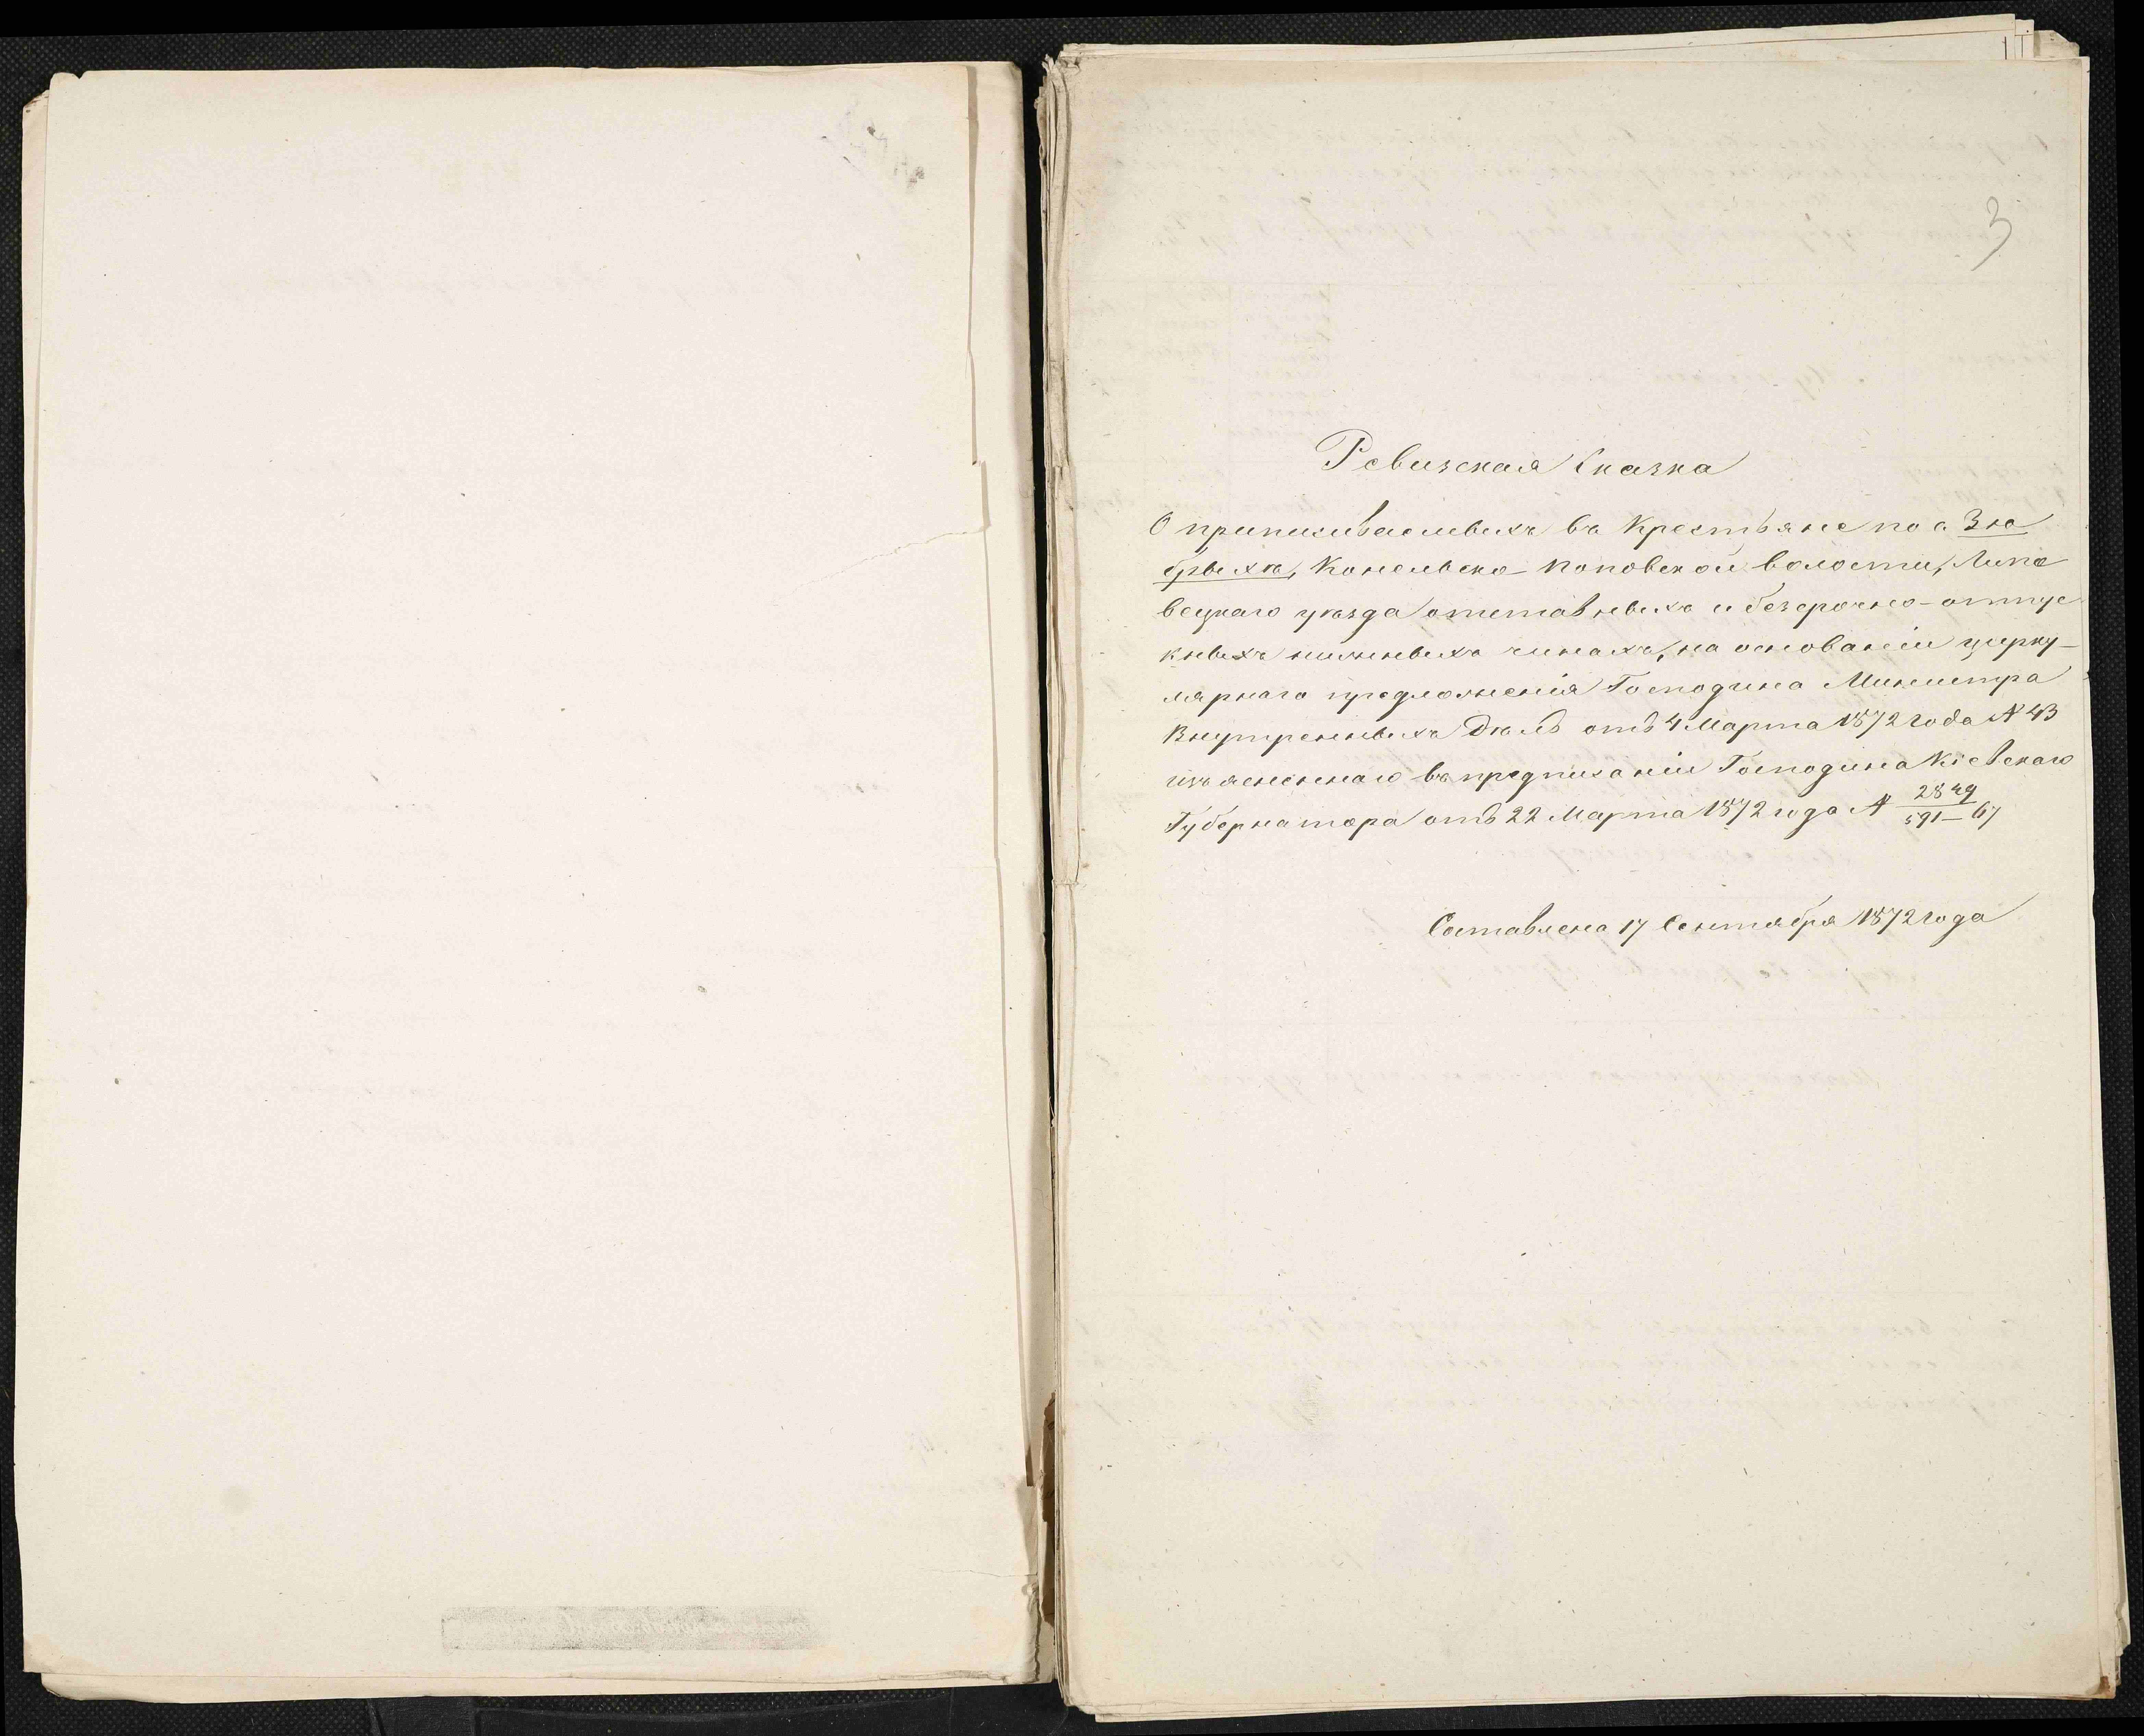 3
Ревизская Сказка
О приписываемыхъ въ Крестьяне по с. Зю
брыхѣ, Конельско-Поповской волости, Липо
вецкаго уѣзда отставныхъ и безсрочно-отпус
кныхъ нижныхъ чинахъ, на основаніи цирку-
лярнаго предложенія Господина Министра
Внутреннихъ Дѣлъ отъ 4 Марта 1872 года № 43
изъясненнаго въ предписаніи Господина Кіевскаго
Губернатора отъ 22 Марта 1872 года № 2849/591-67
Составлена 17 Сентября 1872 года